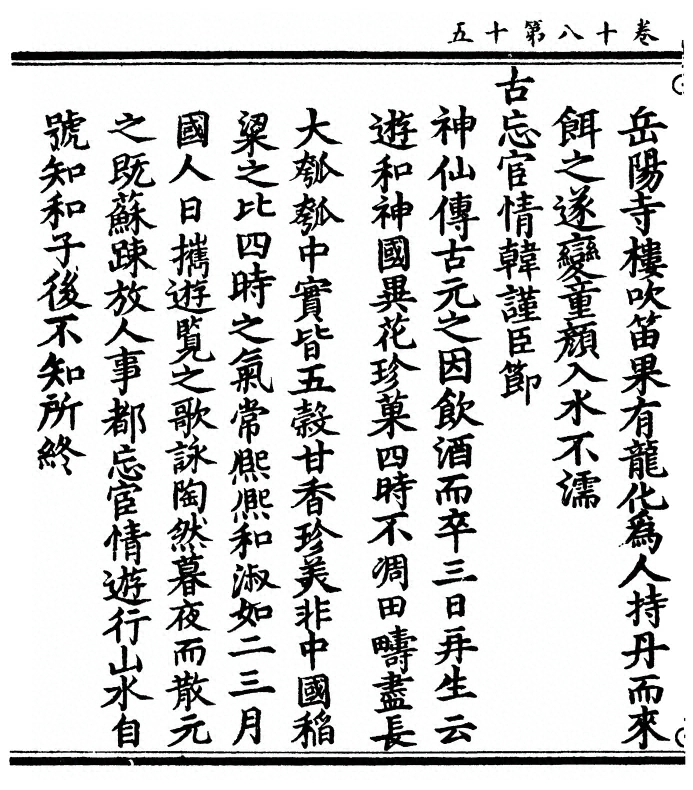 卷十八第十五
岳陽寺樓吹笛果有龍化為人持丹而來
餌之遂變童顏入水不濡
古忘宦情韓謹臣節
神仙傳古元之因飲酒而卒三日再生云
遊和神國異花珍菓四時不凋田疇盡長
大瓠瓠中實皆五穀甘香珍美非中國稻
粱之比四時之氣常熈熈和淑如二三月
國人日攜遊覽之歌詠陶然暮夜而散元
之既蘇踈放人事都忘宦情遊行山水自
號知和子後不知所終